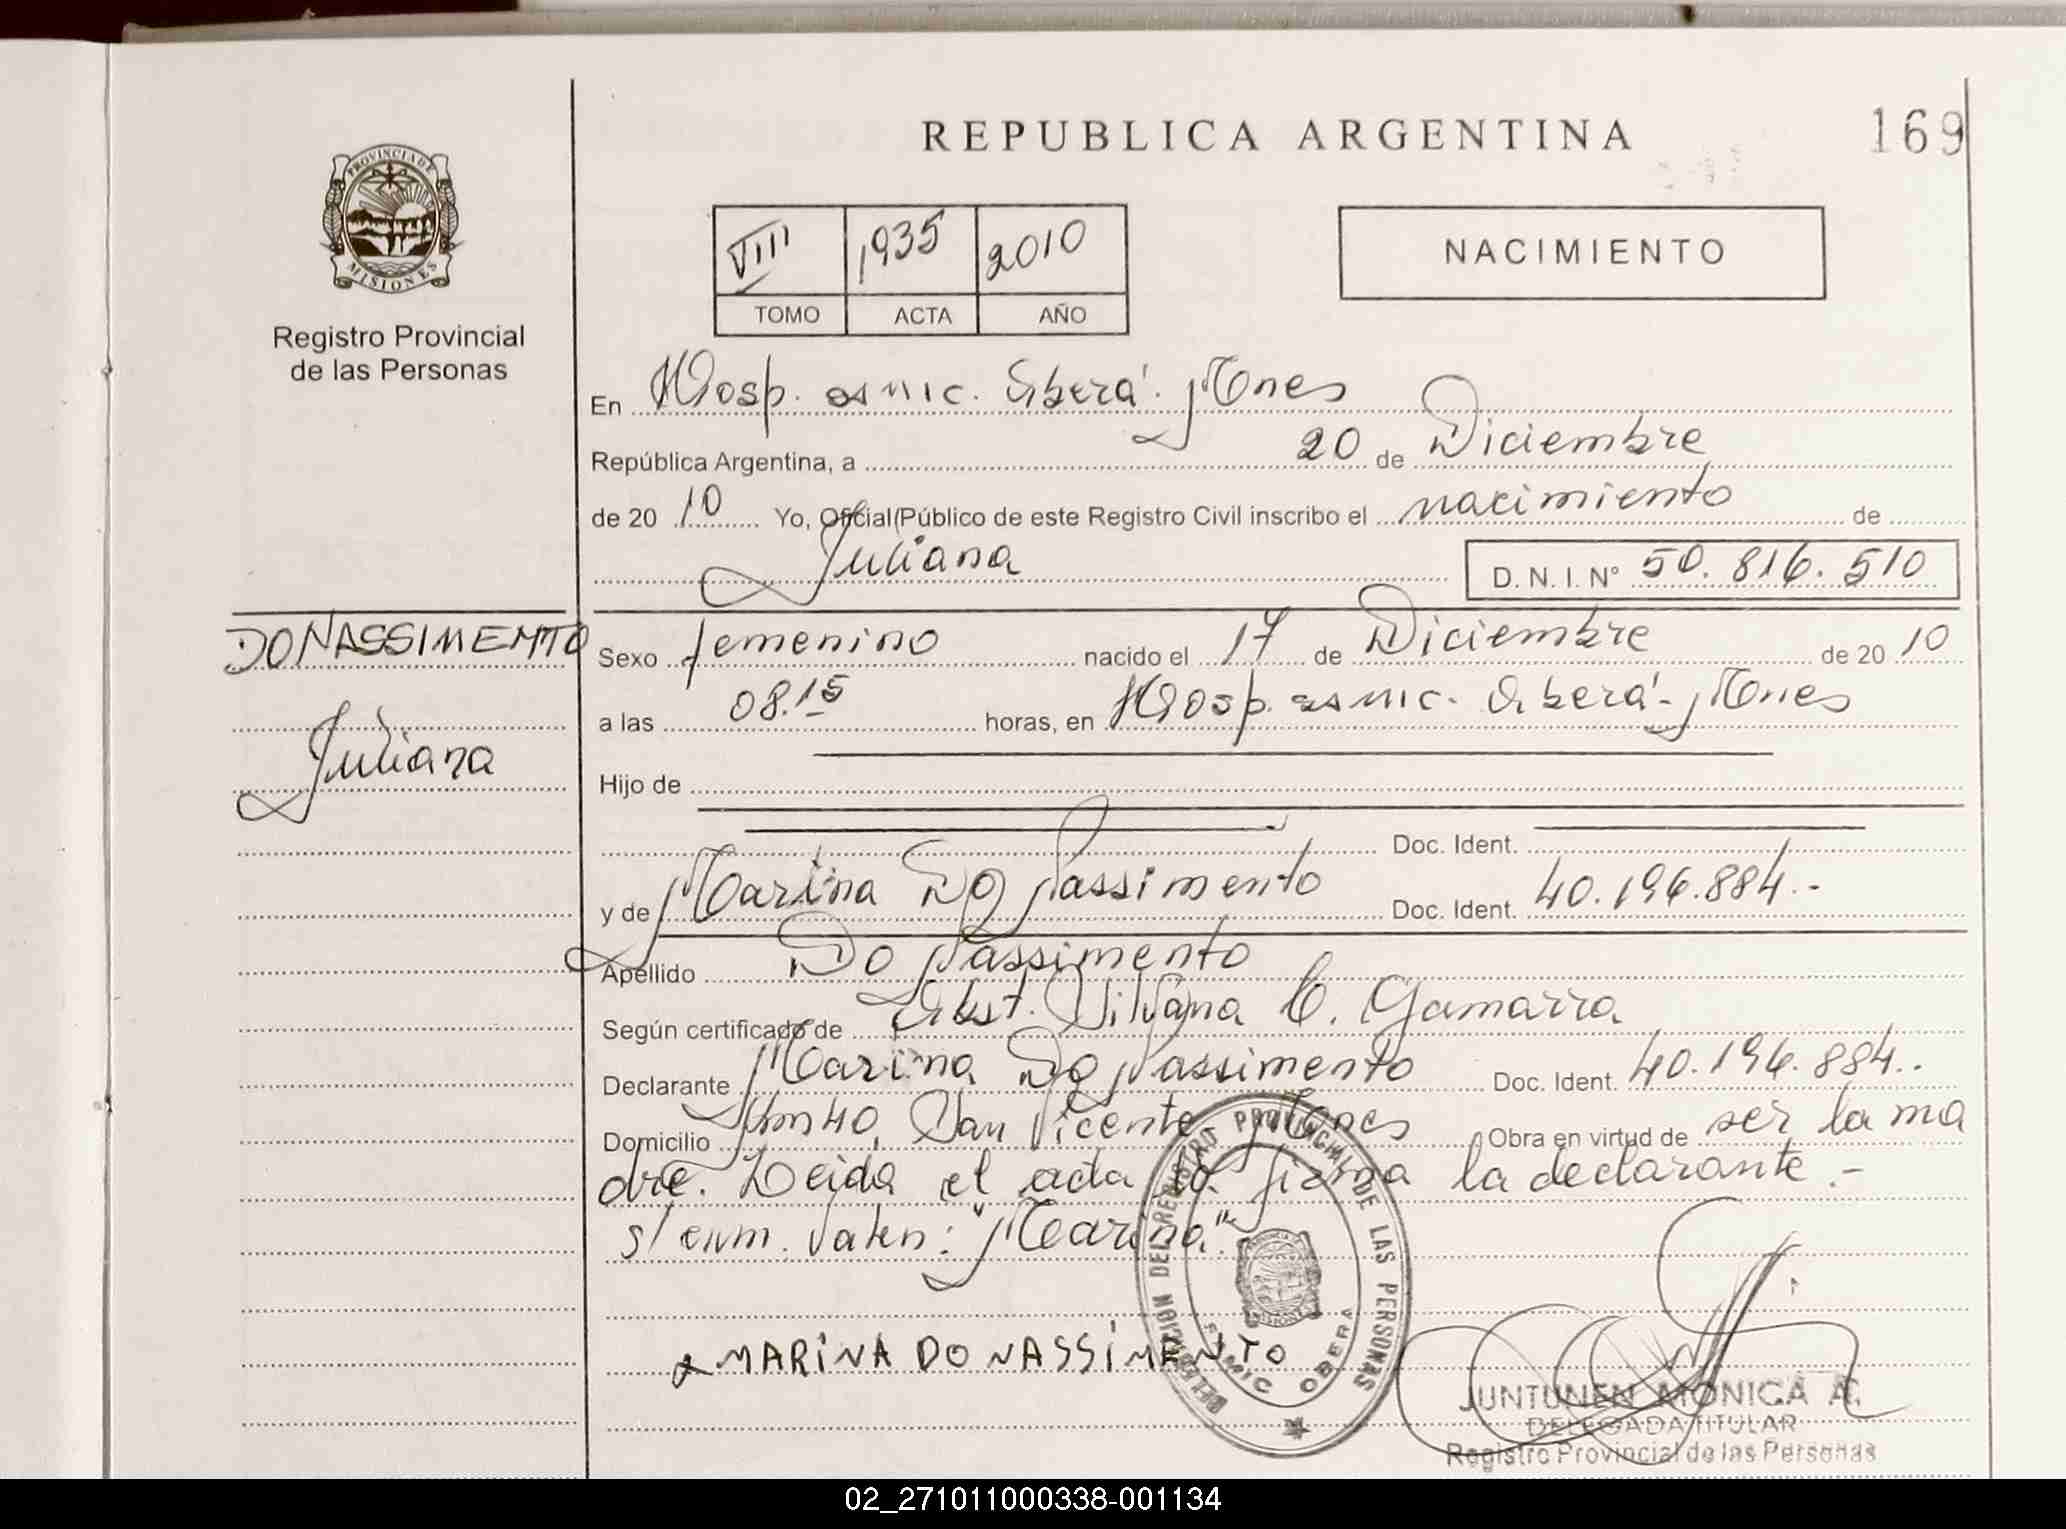 REPUBLICA ARGENTINA
169
PROVINCIA DE MISIONES
Registro Provincial
de las Personas
VIII 1935 2010
TOMO ACTA AÑO
NACIMIENTO
En Hosp. Samic. Oberá. Mnes
República Argentina, a 20 de Diciembre
de 2010 Yo, Oficial Público de este Registro Civil inscribo el nacimiento de
Juliana D. N. I. Nº 50.816.510
DO NASSIMENTO
Juliana
Sexo femenino nacido el 17 de Diciembre de 2010
a las 08.15 horas, en Hosp. Samic. Oberá - Mnes
Hijo de
Doc. Ident.
y de Marina Do Nassimento Doc. Ident. 40.196.884.-
Apellido Do Nassimento
Según certificado de Obst. Silvana C. Gamarra
Declarante Marina Do Nassimento Doc. Ident. 40.196.884..
Domicilio Km 40, San Vicente - Mnes Obra en virtud de ser la ma
dre. Leida el acta la firma la declarante.-
s/ enm. Valen: "Marina"
MARINA DO NASSIMENTO
DELEGACION DEL REGISTRO PROVINCIAL DE LAS PERSONAS
SAMIC OBERA
JUNTUNEN MONICA A.
DELEGADA TITULAR
Registro Provincial de las Personas
02_271011000338-001134